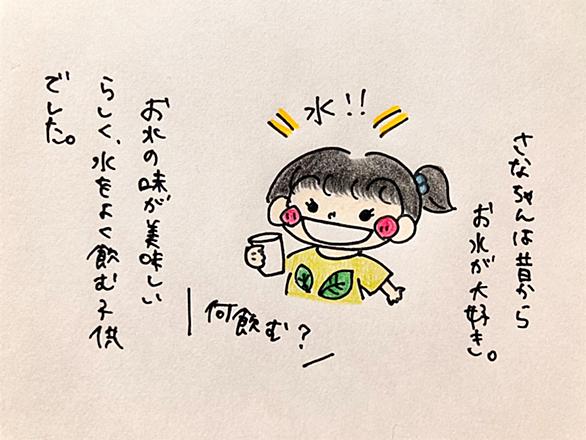 さなちゃんは昔から
お水が大好き。
水!!
何飲む?
お水の味が美味しい
らしく、水をよく飲む子供
でした。